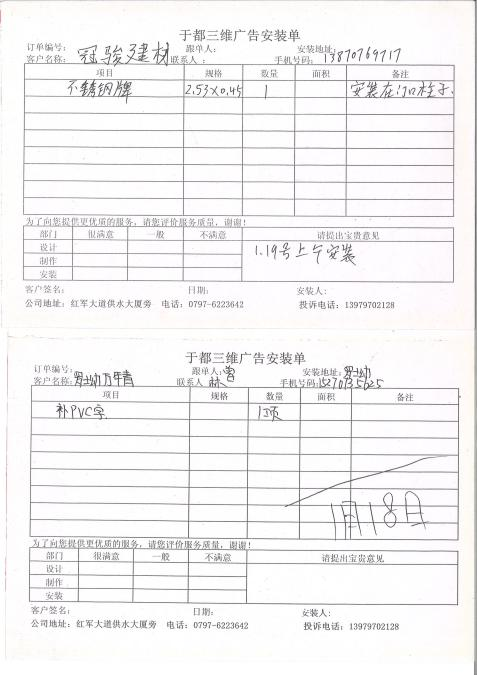 于都三维广告安装单
订单编号： 跟单人： 安装地址：
客户名称： 冠骏建材 联系人 ： 手机号码： 13870769717
项目 规格 数量 面积 备注
不锈钢牌 2.53×0.45 1 安装在门口柱子.
为了向您提供更优质的服务，请您评价服务质量，谢谢！
部门 很满意 一般 不满意 请提出宝贵意见
设计 1.19号上午安装
制作
安装
客户签名： 日期： 安装人：
公司地址：红军大道供水大厦旁 电话：0797-6223642 投诉电话：13979702128
于都三维广告安装单
订单编号： 跟单人：曾 安装地址：
客户名称： 万年青 联系人 林 手机号码：
项目 规格 数量 面积 备注
补PVC字. 1项
1月18日
为了向您提供更优质的服务，请您评价服务质量，谢谢！
部门 很满意 一般 不满意 请提出宝贵意见
设计
制作
安装
客户签名： 日期： 安装人：
公司地址：红军大道供水大厦旁 电话：0797-6223642 投诉电话：13979702128